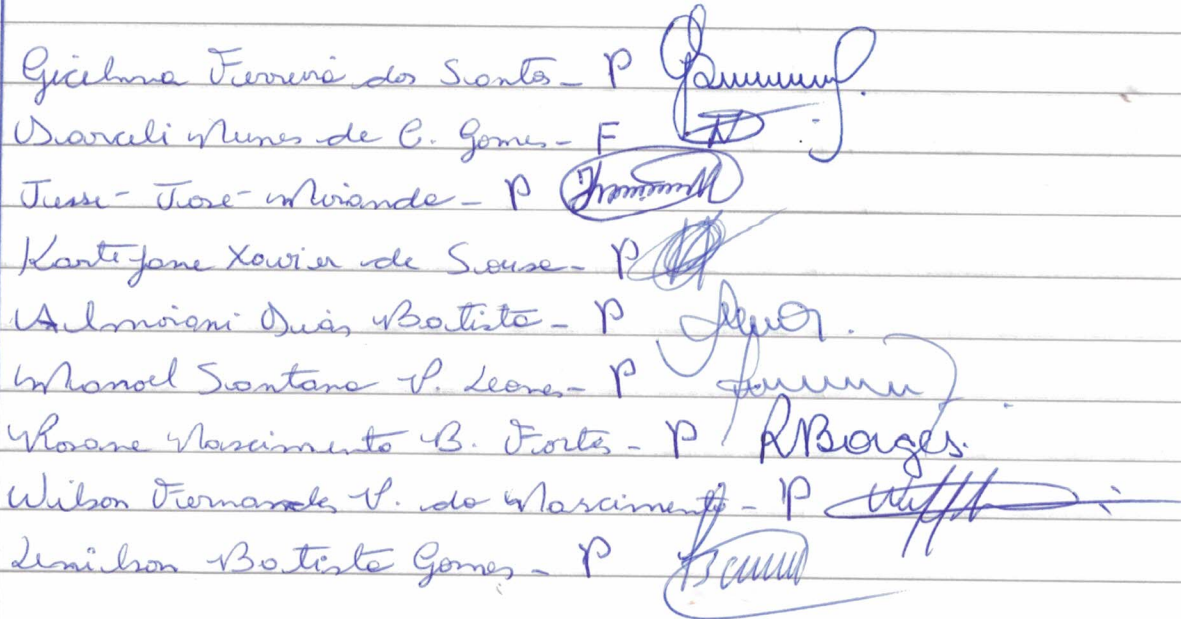 Gicelma Ferreira dos Santos - P
Darceli Nunes de C. Gomes - F
Jusse - José - Miranda - P
Kartejane Xavier de Sousa - P
Almoiani Dias Batista - P
Manoel Santana V. Leones - P
Rosane Nascimento B. Fortes - P RBorges.
Wilson Fernandes V. do Nascimento - P
Lenilson Batista Gomes - P